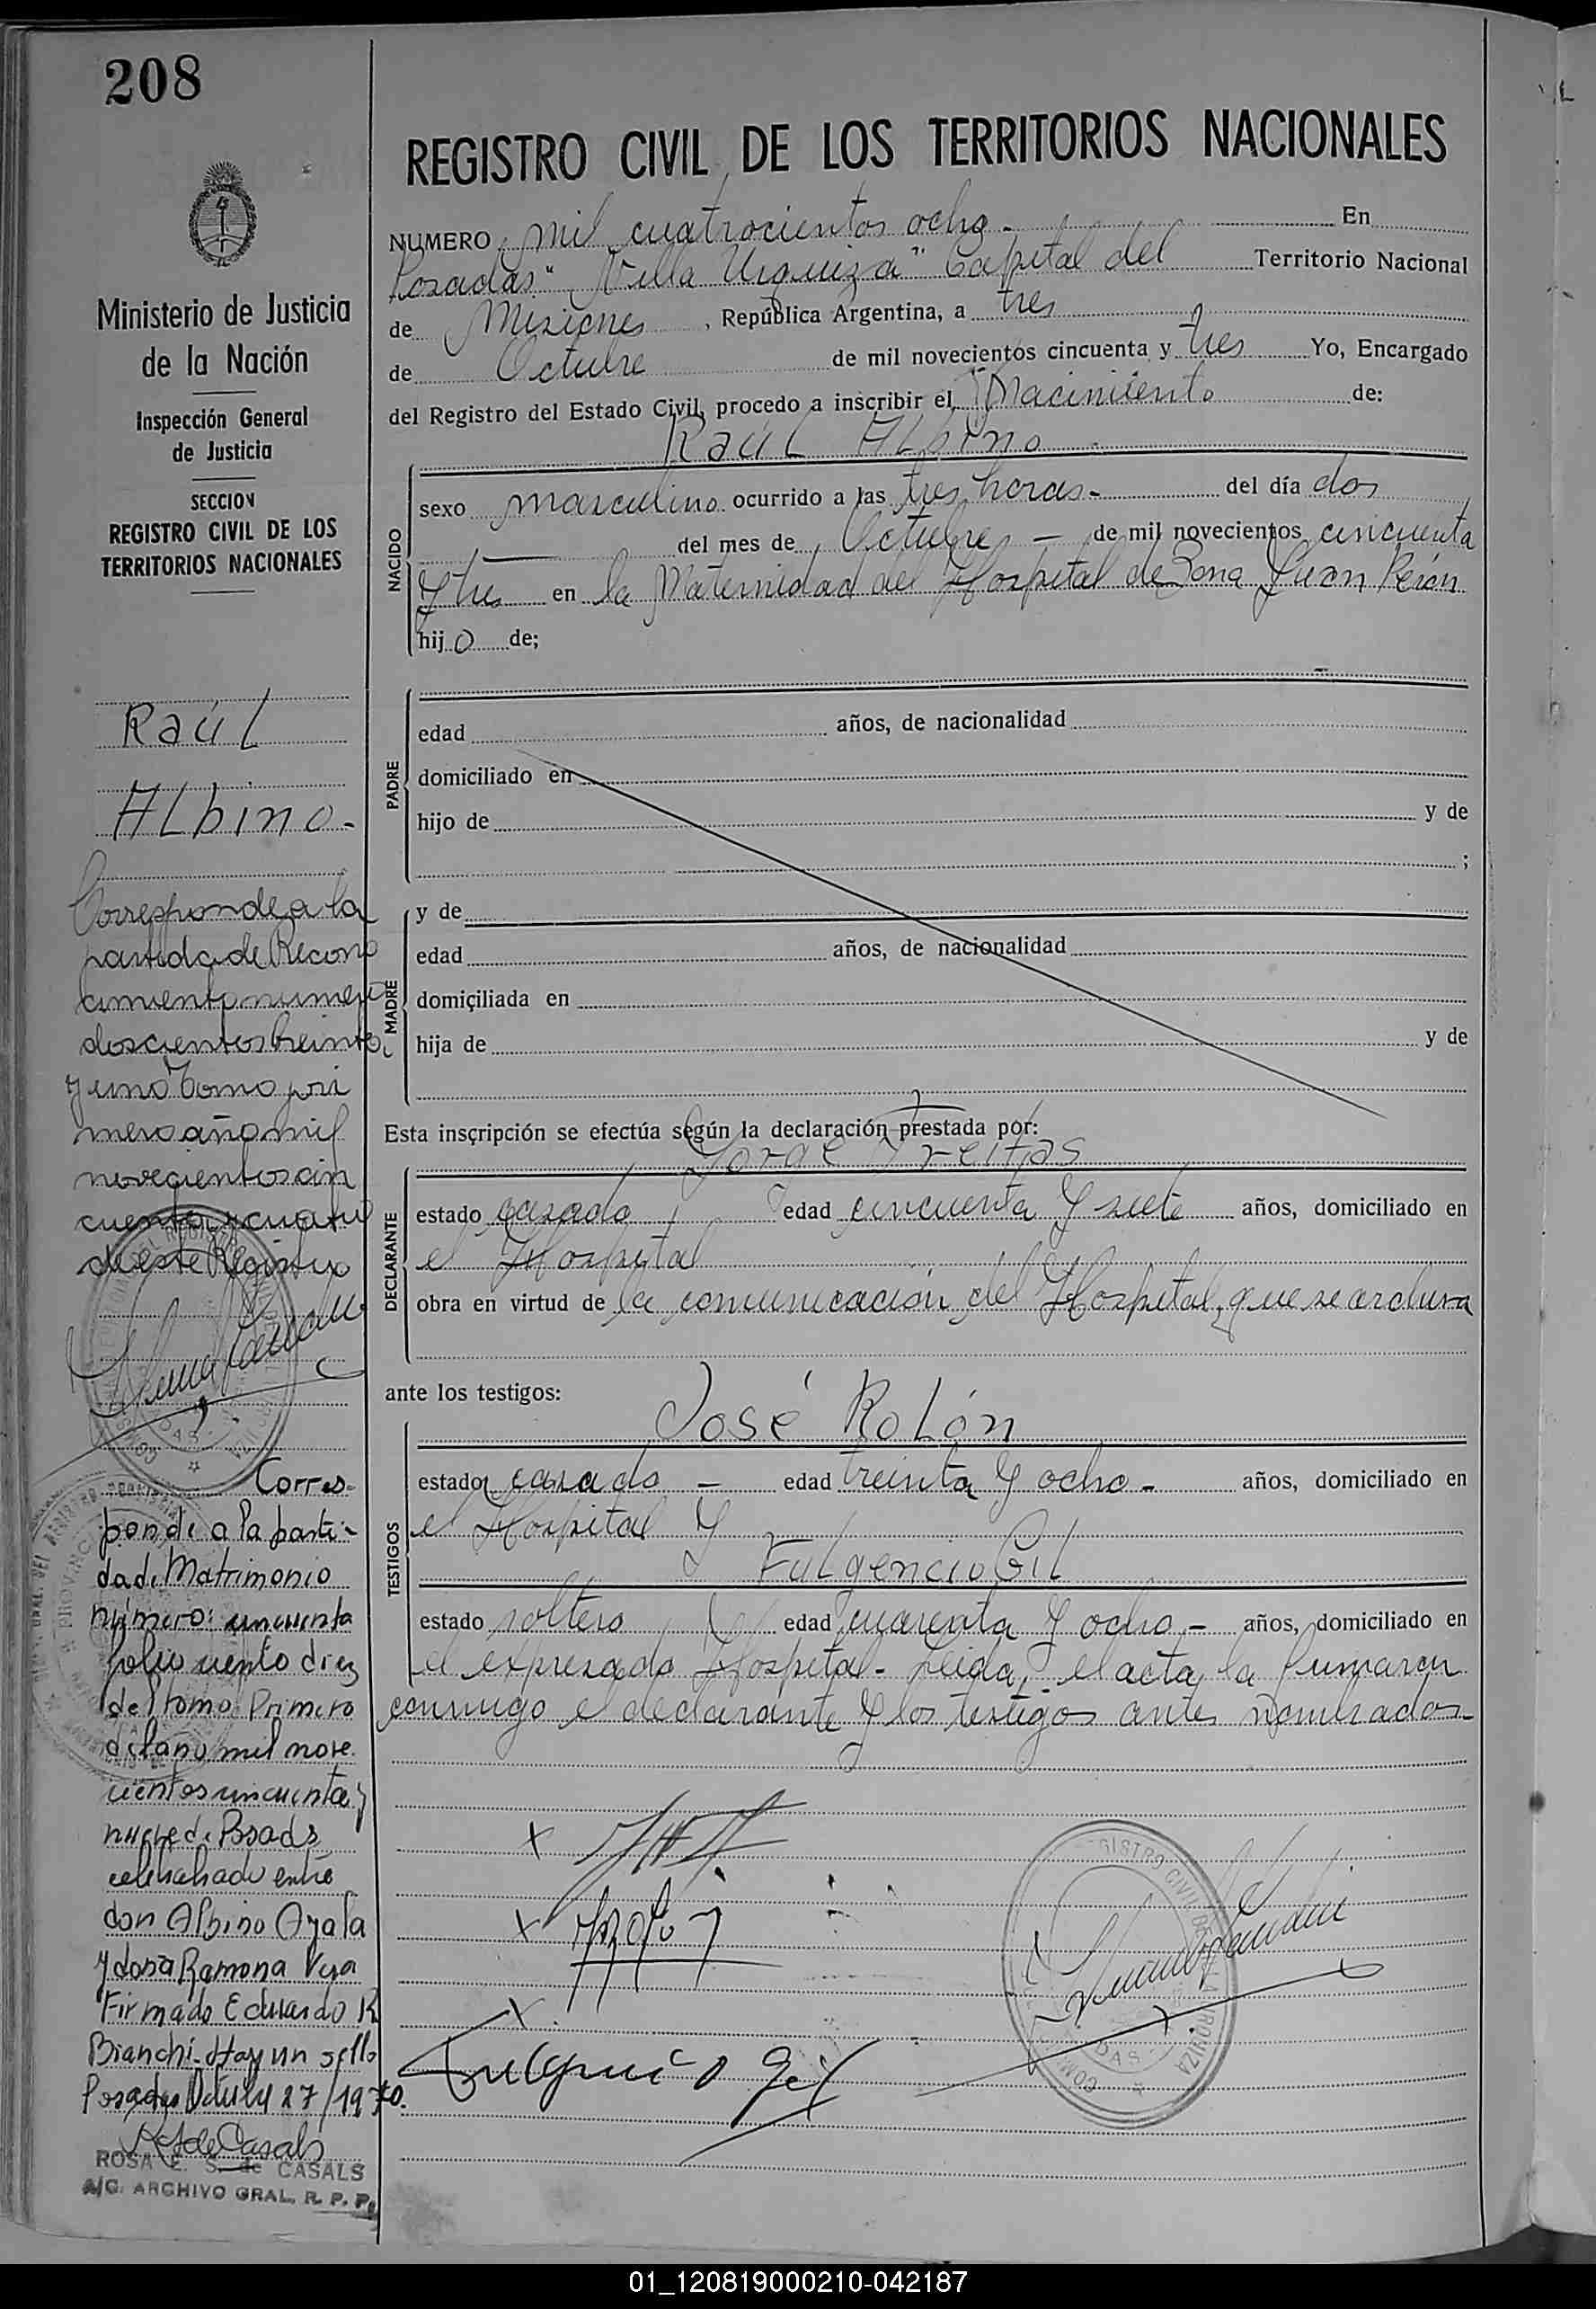 208
REGISTRO CIVIL DE LOS TERRITORIOS NACIONALES
NUMERO mil cuatrocientos ocho.- En
Posadas "Villa Urquiza" Capital del Territorio Nacional
de Misiones, República Argentina, a tres
de Octubre de mil novecientos cincuenta y tres Yo, Encargado
del Registro del Estado Civil, procedo a inscribir el Nacimiento de:
Raúl Albino
NACIDO
sexo masculino ocurrido a las tres horas.- del día dos
del mes de Octubre - de mil novecientos cincuenta
y tres en la Maternidad del Hospital de Zona Juan Perón
hijo de;
PADRE
edad años, de nacionalidad
domiciliado en
hijo de y de
;
MADRE
y de
edad años, de nacionalidad
domiciliada en
hija de y de
Esta inscripción se efectúa según la declaración prestada por:
Jorge Freitas
DECLARANTE
estado casado, edad cincuenta y siete años, domiciliado en
el Hospital
obra en virtud de la comunicación del Hospital, que se archiva
ante los testigos:
José Rolón
TESTIGOS
estado casado - edad treinta y ocho - años, domiciliado en
el Hospital y
Fulgencio Gil
estado soltero edad cuarenta y ocho - años, domiciliado en
el expresado Hospital- Leida, el acta, la firmaron
conmigo el declarante y los testigos antes nombrados-
Fulgencio Gil
Ministerio de Justicia
de la Nación
Inspección General
de Justicia
SECCION
REGISTRO CIVIL DE LOS
TERRITORIOS NACIONALES
Raúl
Albino-
Corresponde a la
partida de Recono
cimiento numero
doscientos treinta
y uno Tomo pri
mero año mil
novecientos cin
cuenta y cuatro
de este Registro
Corres-
ponde a la parti-
da de Matrimonio
número: cincuenta
folio ciento diez
del tomo Primero
del año mil nove
cientos cincuenta y
nueve de Posadas
celebrado entre
don Albino Ayala
y doña Ramona Vera
Firmado Eduardo R
Bianchi- Hay un sello
Posadas 27/1970.
ROSA E. S. de CASALS
A/C. ARCHIVO GRAL. R. P. P.
01_120819000210-042187